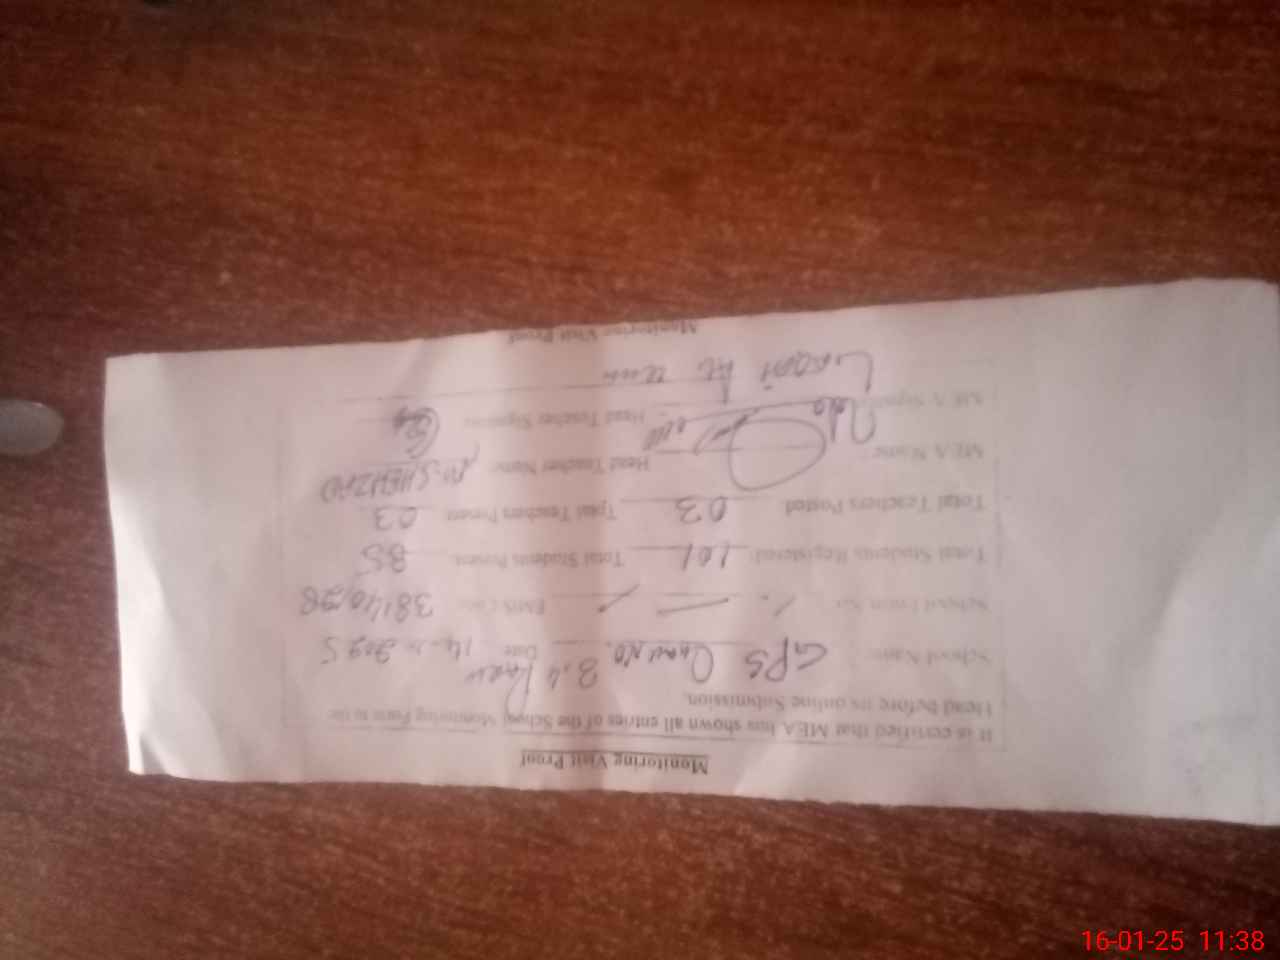 Monitoring Visit Proof
It is certified that MEA has shown all entries of the School Monitoring Form to the
Head before its online Submission.
School Name GPS No. Date 2025
School EMIS Code
Total Students Registered 101 Total Students Present 85
Total Teachers Posted 03 Total Teachers Present 03
MEA Name Head Teacher Name M. SHEHZAD
MEA Signature Head Teacher Signature
Monitoring Visit Proof
16-01-25 11:38